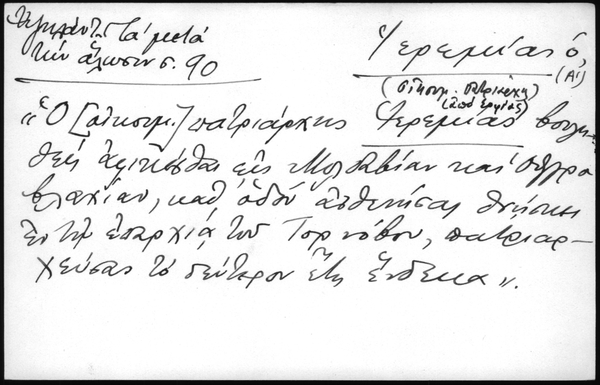 Ὑψηλάντ. Τὰ μετὰ
τὴν ἅλωσιν σ. 90
Ἱερεμίας ὁ,
(Α')
(οἰκουμ. πατριάρχης)
«Ὁ [οἰκουμ.] πατριάρχης Ἱερεμίας βουλη-
θεὶς ἀφικέσθαι εἰς Μολδαβίαν καὶ Οὐγγρο
βλαχίαν, καθ' ὁδὸν ἀσθενήσας θνήσκει
ἐν τῇ ἐπαρχίᾳ τοῦ Τορνόβου, πατριαρ-
χεύσας τὸ δεύτερον ἔτη ἕνδεκα».